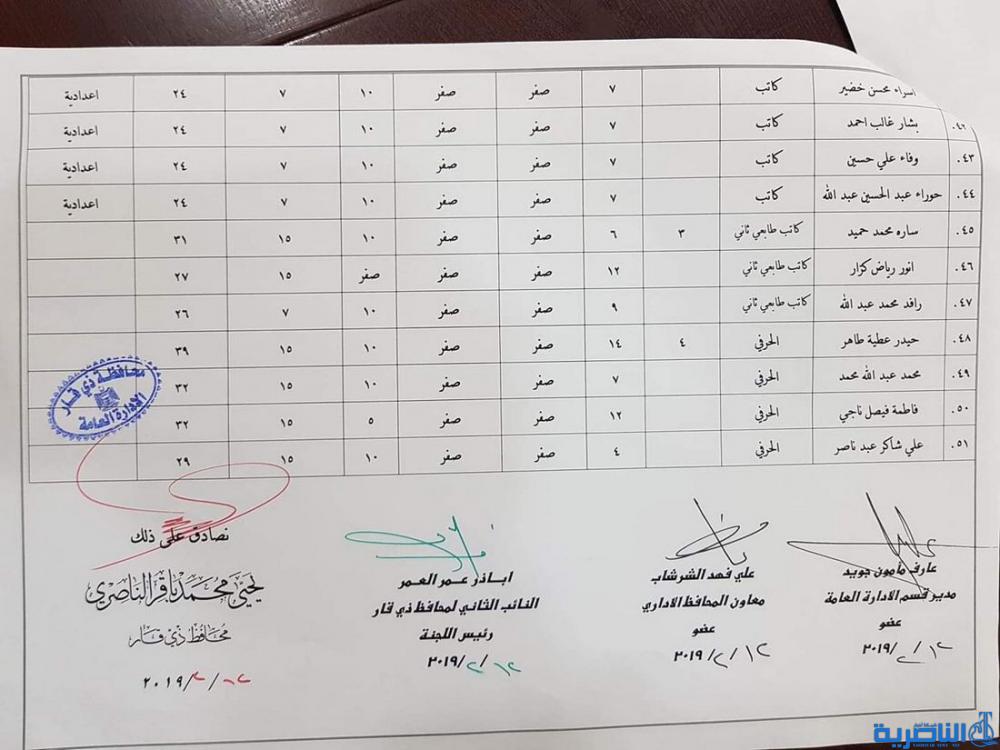 اسراء محسن خضير كاتب ٧ صفر صفر ١٠ ٧ ٢٤ اعدادية
٤٢. بشار غالب احمد كاتب ٧ صفر صفر ١٠ ٧ ٢٤ اعدادية
٤٣. وفاء علي حسين كاتب ٧ صفر صفر ١٠ ٧ ٢٤ اعدادية
٤٤. حوراء عبد الحسين عبد الله كاتب ٧ صفر صفر ١٠ ٧ ٢٤ اعدادية
٤٥. ساره محمد حميد كاتب طابعي ثاني ٣ ٦ صفر صفر ١٠ ١٥ ٣١
٤٦. انور رياض كزار كاتب طابعي ثاني ١٢ صفر صفر صفر ١٥ ٢٧
٤٧. رافد محمد عبد الله كاتب طابعي ثاني ٩ صفر صفر ١٠ ٧ ٢٦
٤٨. حيدر عطية طاهر الحرفي ٤ ١٤ صفر صفر ١٠ ١٥ ٣٩
٤٩. محمد عبد الله محمد الحرفي ٧ صفر صفر ١٠ ١٥ ٣٢
٥٠. فاطمة فيصل ناجي الحرفي ١٢ صفر صفر ٥ ١٥ ٣٢
٥١. علي شاكر عبد ناصر الحرفي ٤ صفر صفر ١٠ ١٥ ٢٩
محافظة ذي قار
الادارة العامة
عارف مامون جويد
مدير قسم الادارة العامة
عضو
١٢/٢/٢٠١٩
علي فهد الشرشاب
معاون المحافظ الاداري
عضو
١٢/٢/٢٠١٩
اباذر عمر العمر
النائب الثاني لمحافظ ذي قار
رئيس اللجنة
١٢/٢/٢٠١٩
نصادق على ذلك
يحيى محمد باقر الناصري
محافظ ذي قار
١٢/٢/٢٠١٩
الناصرية